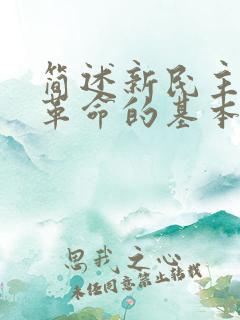 简述新民主
革命的基本
思我之心
未经同意禁止转载